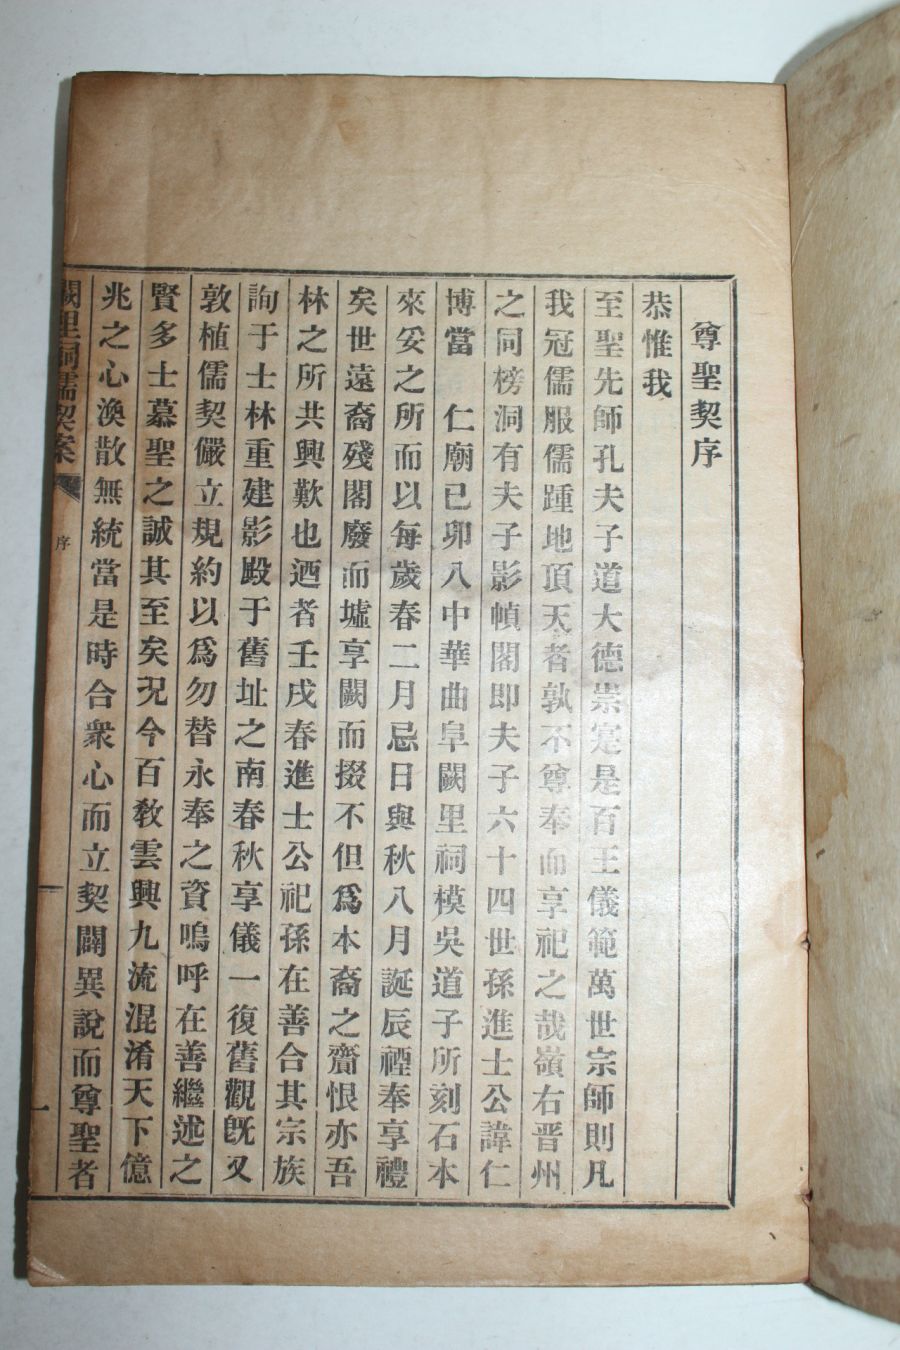 尊聖契序
恭惟我
至聖先師孔夫子道大德崇寔是百王儀範萬世宗師則凡
我冠儒服儒踵地頂天者孰不尊奉而享祀之哉嶺右晋州
之同榜洞有夫子影幀閣即夫子六十四世孫進士公諱仁
博當 仁廟已卯八中華曲阜闕里祠模吳道子所刻石本
來妥之所而以每歲春二月忌日與秋八月誕辰禋奉享禮
矣世遠裔殘閣廢而墟享闕而掇不但爲本裔之齎恨亦吾
林之所共興歎也迺者壬戌春進士公祀孫在善合其宗族
詢于士林重建影殿于舊址之南春秋享儀一復舊觀旣又
敦植儒契儼立規約以爲勿替永奉之資嗚呼在善繼述之
賢多士慕聖之誠其至矣況今百敎雲興九流混淆天下億
兆之心渙散無統當是時合衆心而立契闢異說而尊聖者
闕里祠儒契案 序 一